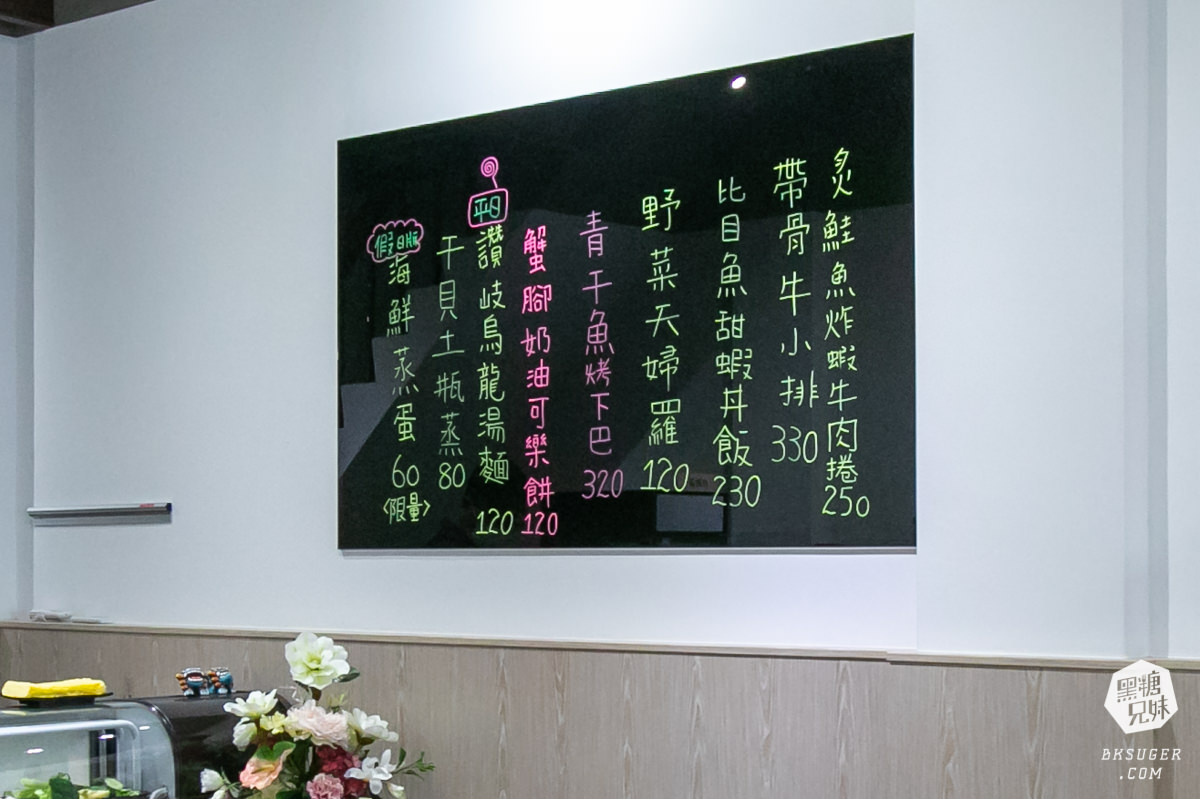 炙鮭魚炸蝦牛肉捲250
帶骨牛小排330
比目魚甜蝦丼飯230
野菜天婦羅120
青干魚烤下巴320
蟹腳奶油可樂餅120
平日
讚岐烏龍湯麵120
干貝土瓶蒸80
假日版
海鮮蒸蛋60
<限量>
黑糖
兄妹
BKSUGER
.COM